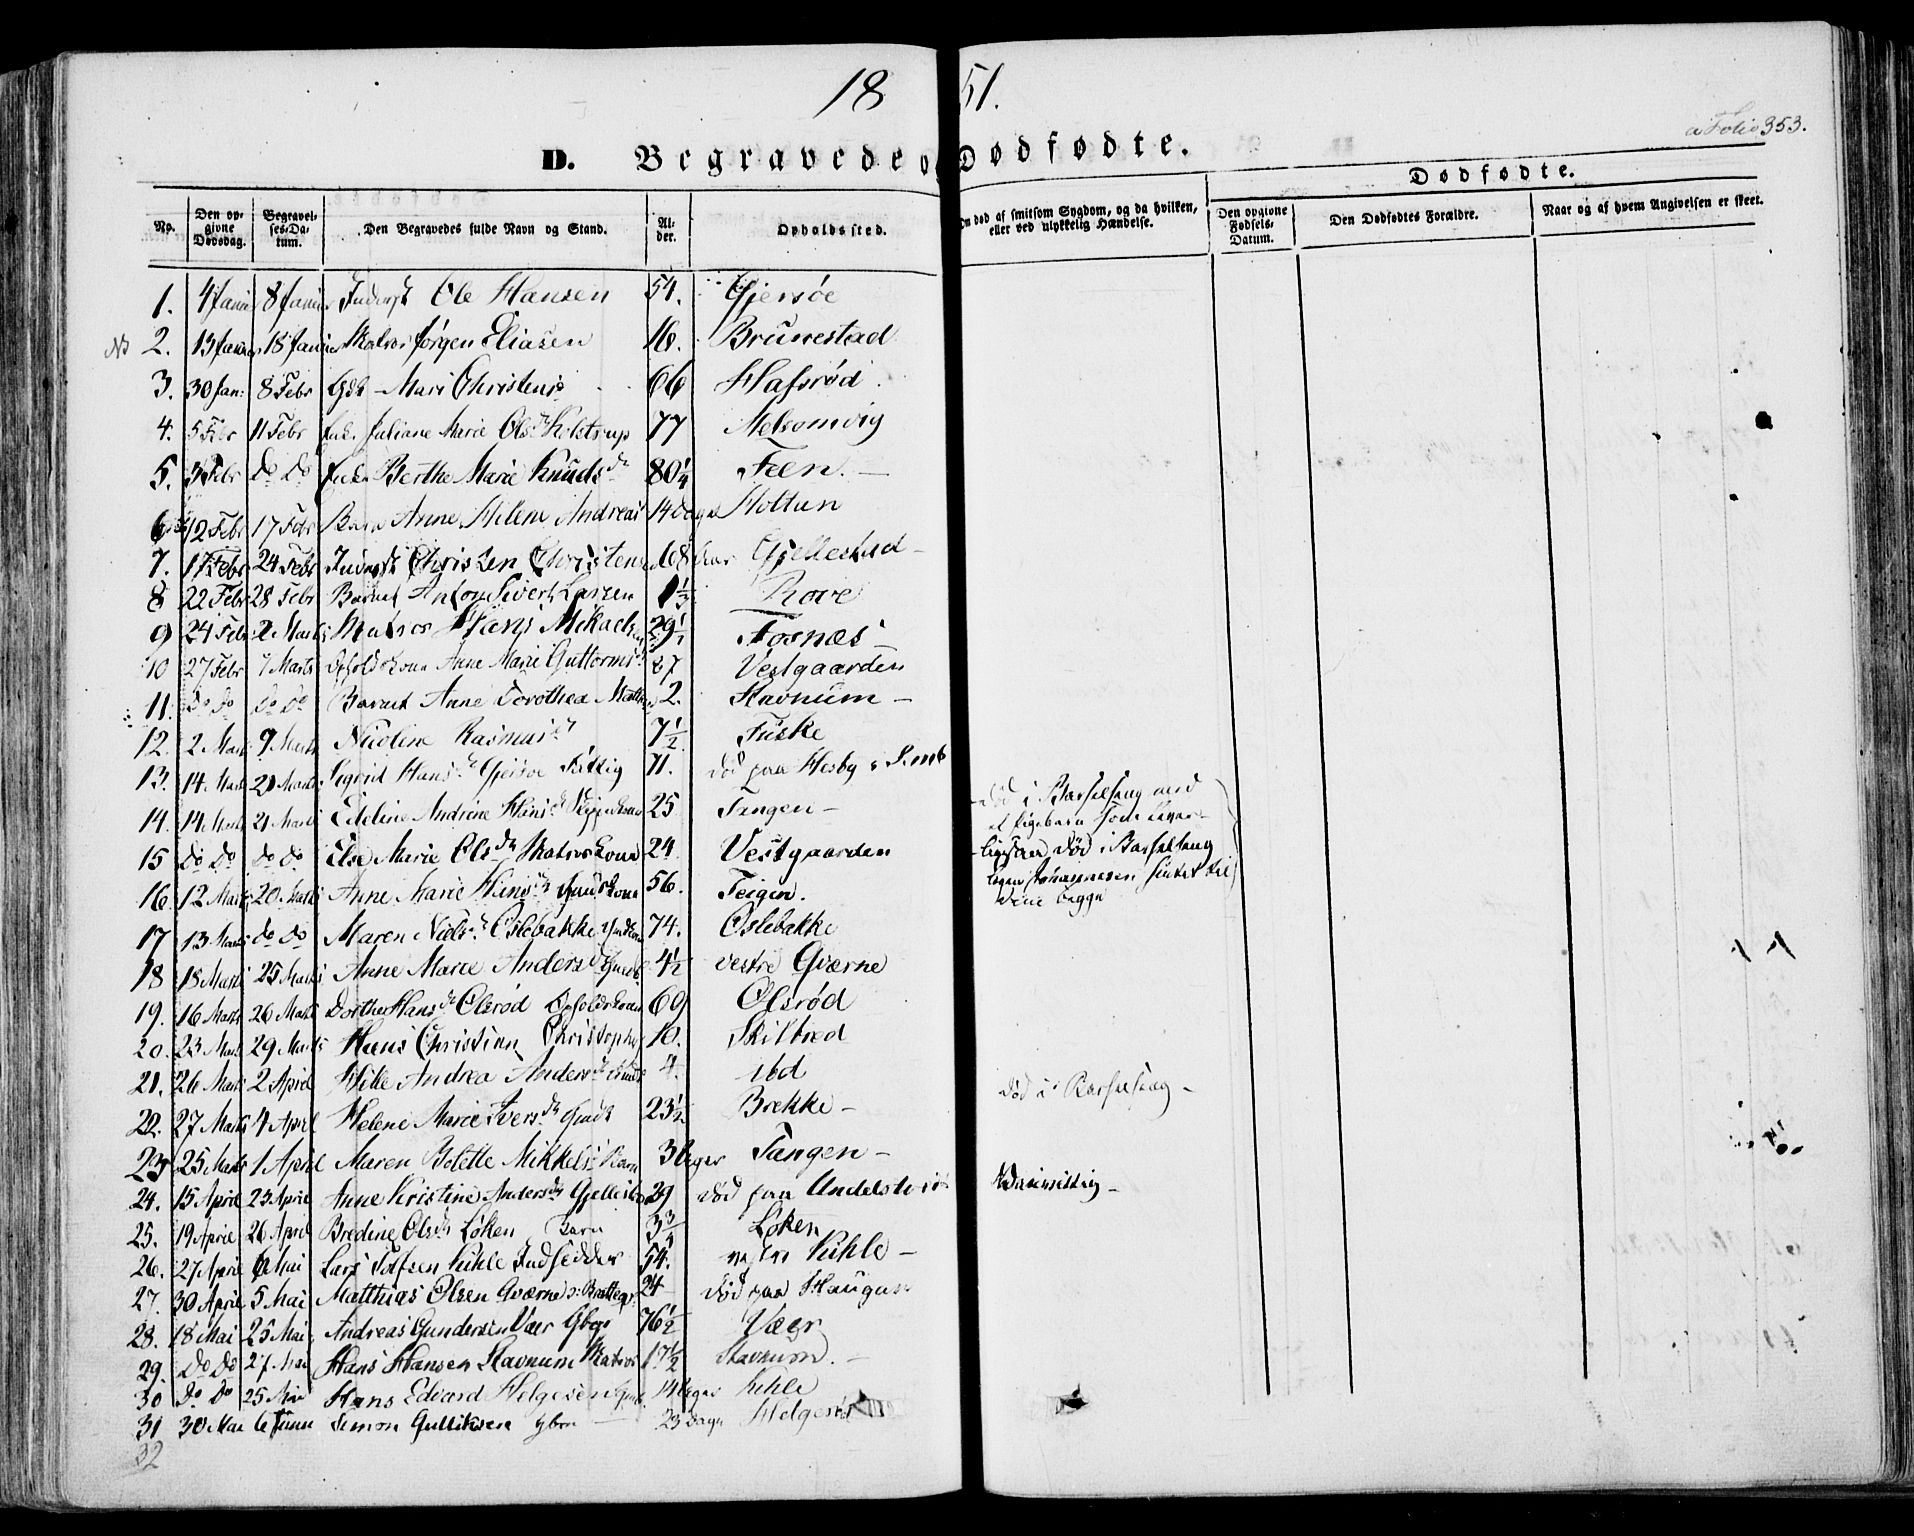 18 51.
a Folio 353.
D. Begravede og Dødfødte.
Dødfødte.
No.
Den opgivne Dødsdag.
Begravelses-Datum.
Den Begravedes fulde Navn og Stand.
Alder.
Opholdssted.
Om død af smitsom Sygdom, og da hvilken, eller ved ulykkelig Hændelse.
Den opgivne Fødsels-Datum.
Den Dødfødtes Forældre.
Naar og af hvem Angivelsen er skeet.
1. 4 Janu 8 Janu Inderst Ole Hansen 54. Gjersøe
2. 13 Janu 18 Janu Matros Jørgen Eliasen 16. Brunestad
3. 30 Jan: 8 Febr Mari Christens 66 Hafsrød
4. 5 Febr 11 Febr Enke Juliane Marie Olsdr Kolstrup 77 Melsomvig
5. 3 Febr Do Do Enke Berthe Marie Knudsdr 80 1/4 Feen.
6 12 Febr 17 Febr Barn Anne Helene Andreas 14 Dage Holtun
7. 17 Febr 24 Febr Inderst Christen Christens 68 Gjellestad
8 22 Febr 28 Febr Barnet Anton Sivert Larsen 1 1/3 Rove
9 24 Febr 2 Marts Matros Hans Mikaels 29 1/2 Fosnæs
10 27 Febr 7 Marts Opholdskone Anne Marie Guttorms 87 Vestgaarden
11. Do Do Do Do Barnet Anne Dorothea Matt 2. Stavnum
12. 2 Marts 9 Marts Nicoline Rasmusdr 7 1/2 Fuske
13. 14 Marts 21 Marts Sigrid Hansdr Gjersøe Fattig 71. død paa Hesby i Semb
14. 14 Marts 21 Marts Edeline Andrine Hansdr 25 Tangen død i Barselseng med et Pigebarn
15 Do Do Do Do Else Marie Olsdr Matroskone 24 Vestgaarden død i Barselseng
16. 12 Marts 20 Marts Anne Marie Hansdr 56. Teigen. begge
17 13 Marts Do Do Maren Nielsdr Oslebakke 74. Oslebakke
18 18 Marts 25 Marts Anne Marie Anders 4 1/2 vestre Gværne
19. 16 Marts 26 Marts Dorthe Hansdr Olsrød Opholdskone 69 Olsrød
20. 23 Marts 29 Marts Hans Christian Christophs 10. Skilbred
21. 26 Marts 2 April Andrea Andersdr 4. ibd
22. 27 Marts 4 April Helene Marie Iversdr 23 1/2 Brekke død i Barselseng
23 25 Marts 1 April Maren Bolette Mikkels Barn 3 Uger Tangen
24. 15 April 23 April Anne Kristine Andersdr 29 død paa
25. 19 April 26 April Bredine Olsdr Løken Barn 3 3/4 Løken
26. 27 April 6 Mai Lars Tolfsen Kihle Indsidder 54. Kihle
27. 30 April 5 Mai Matthias Olsen Gværne 24 død paa Haugan
28. 18 Mai 25 Mai Andreas Gundersen Vær Gbgr 76 1/2 Væer
29. Do Do 27 Mai Hans Hansen Stavnum Matros 17 1/2 Stavnum.
30 Do Do 25 Mai Hans Edvard Helgesen 14 Uger Kihle
31 30 Mai 6 Juni Simon Gulliksen gbrn 23 Dage Helgerød
32